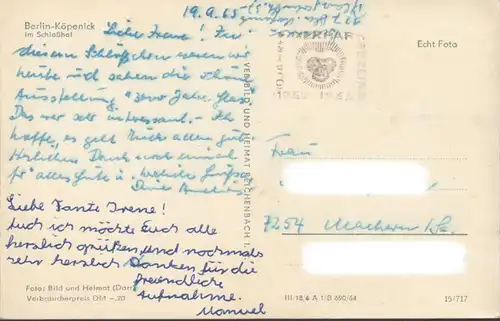 Berlin-Köpenick
Im Schloßhof
19.9.65
Echt Foto
Liebe Irene! In
diesem Schlößchen waren wir
heute und sahen die
Ausstellung "3000 Jahre Glas"
Das war sehr interessant.
hoffe, es geht Euch allen gut.
Herzlichen Dank noch einmal
für alles Gute u. herzliche Grüße
Deine
Liebe Tante Irene!
Auch ich möchte Euch alle
herzlich grüßen, und nochmals
sehr herzlich Danken für die
freundliche
Aufnahme.
Manuel
VEB BILD UND HEIMAT REICHENBACH I. V.
Frau
7254 Machern
Foto: Bild und Heimat
Verbraucherpreis DM -,20
III 18/6 A 1/B 690/64
15/717